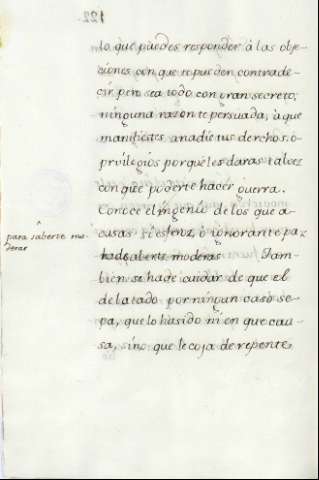 122.
lo que puedes responder á las obje-
ciones con que te pueden contrade-
cir, pero sea todo con gran secreto,
ninguna razon te persuada, à que
manifiestes anadie tus derchos. o
privilegios porque les daras talvez
con que poderte hacer guerra.
Conoce el ingenio de los que a-
cusas si es feroz, ò ignorante pa-
para saberte mo-
deras
moderas Tam-
bien se hade cuidar de que el
delatado por ningun caso se-
pa, que lo hasido ni en que cau-
sa, sino que le coja de repente,